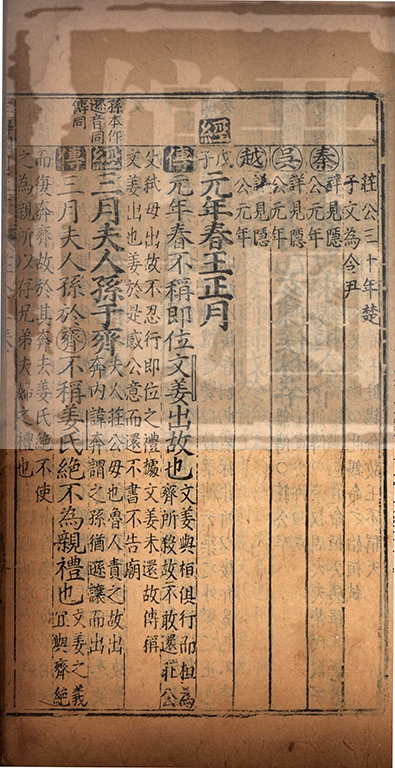 莊公三十年楚
子文為令尹
秦詳見隱
公元年
吳詳見隱
公元年
越詳見隱
公元年
經戊子元年春王正月
傳元年春不稱即位文姜出故也文姜與桓俱行而桓為
齊所殺故不敢還莊公
父弒母出故不忍行即位之禮據文姜未還故傳稱
文姜出也姜於是感公意而還不書不告廟
孫本作
遜音同
傳同
經三月夫人孫于齊夫人莊公母也魯人責之故出
奔內諱奔謂之孫猶遜讓而出
傳三月夫人孫於齊不稱姜氏絕不為親禮也文姜之義
宜與齊絕
而復奔齊故於其奔去姜氏絕不使
之為親所以存兄弟夫婦之禮也